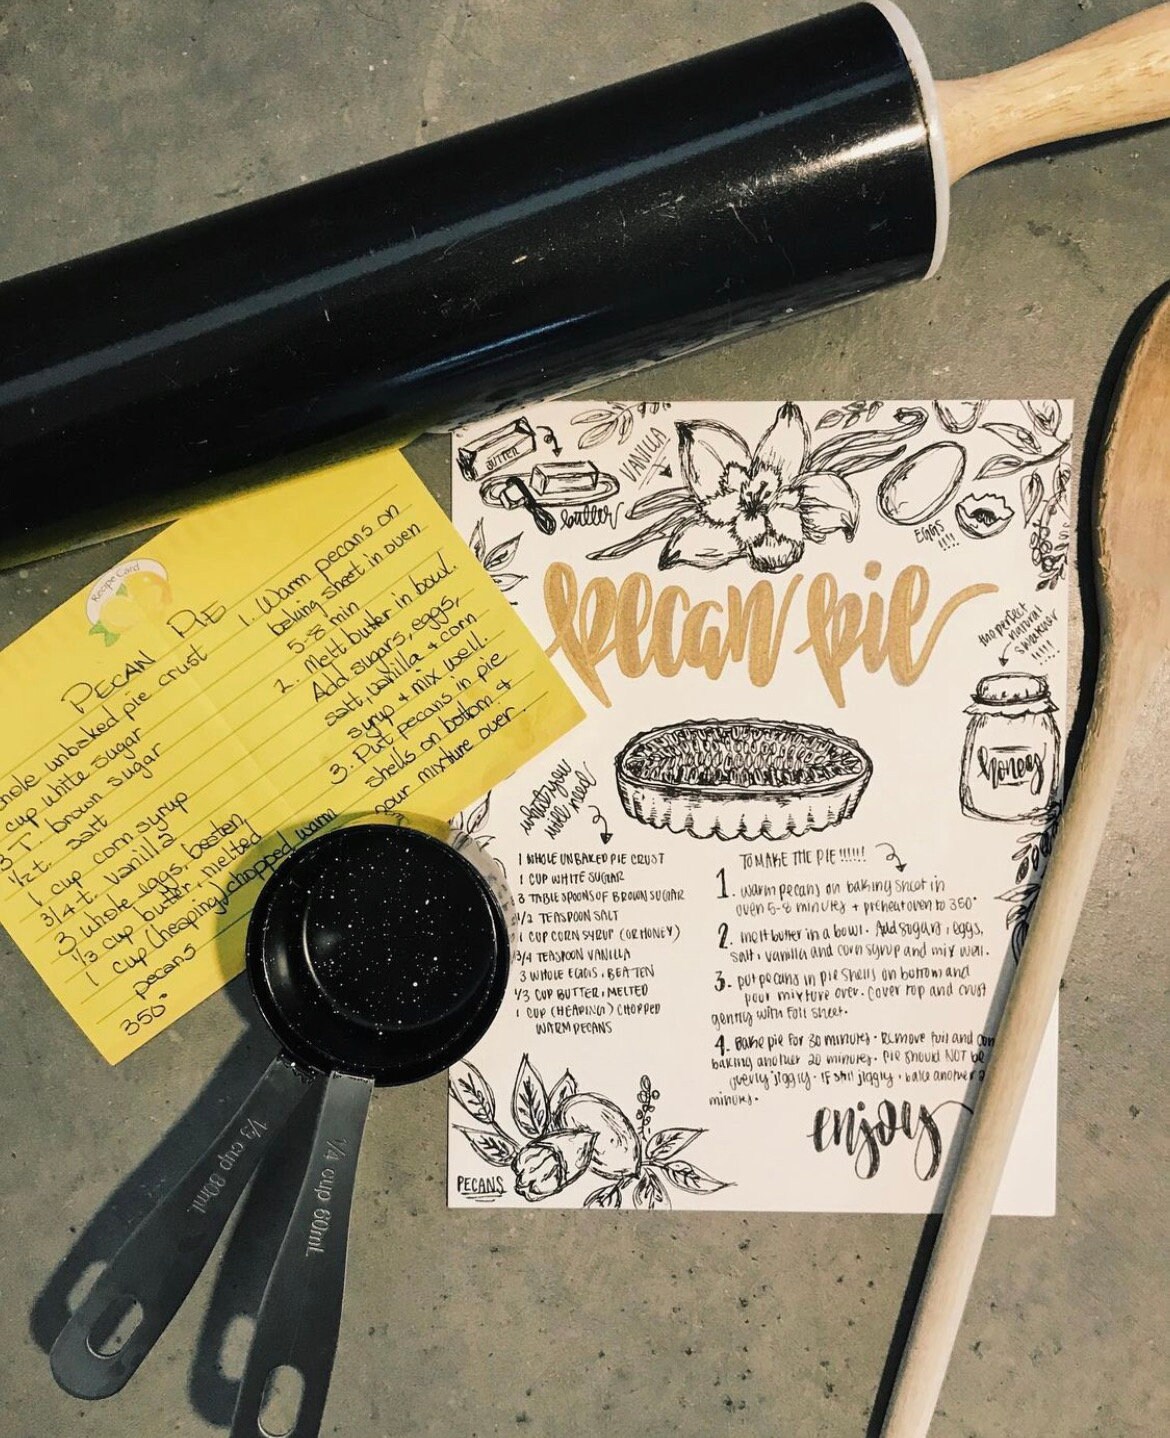 Recipe Card
PECAN PIE
whole unbaked pie crust
cup white sugar
3 T. brown sugar
1/2 t. salt
1 cup corn syrup
3/4 t. vanilla
3 whole eggs, beaten,
1/3 cup butter, melted
1 cup (heaping) chopped warm
pecans
350°
1. Warm pecans on
baking sheet in oven
5-8 min
2. Melt butter in bowl.
Add sugars, eggs,
salt, vanilla & corn
syrup & mix well.
3. Put pecans in pie
shells on bottom &
pour mixture over.
BUTTER
butter
VANILLA
EGGS
!!!!
pecan pie
the perfect
natural
sweetener
!!!!!
honey
what you
will need
1 WHOLE UNBAKED PIE CRUST
1 CUP WHITE SUGAR
3 TABLESPOONS OF BROWN SUGAR
1/2 TEASPOON SALT
1 CUP CORN SYRUP (OR HONEY)
3/4 TEASPOON VANILLA
3 WHOLE EGGS, BEATEN
1/3 CUP BUTTER, MELTED
1 CUP (HEAPING) CHOPPED
WARM PECANS
TO MAKE THE PIE!!!!!!
1. warm pecans on baking sheet in
oven 5-8 minutes + preheat oven to 350°
2. melt butter in a bowl. Add sugar, eggs,
salt, vanilla and corn syrup and mix well.
3. put pecans in pie shells on bottom and
pour mixture over. cover top and crust
gently with foil sheet.
4. Bake pie for 30 minutes. Remove foil and con
baking another 20 minutes. pie should NOT be
overly jiggly. IF still jiggly, bake another
minutes.
enjoy
PECANS
1/3 cup 80mL
1/4 cup 60mL